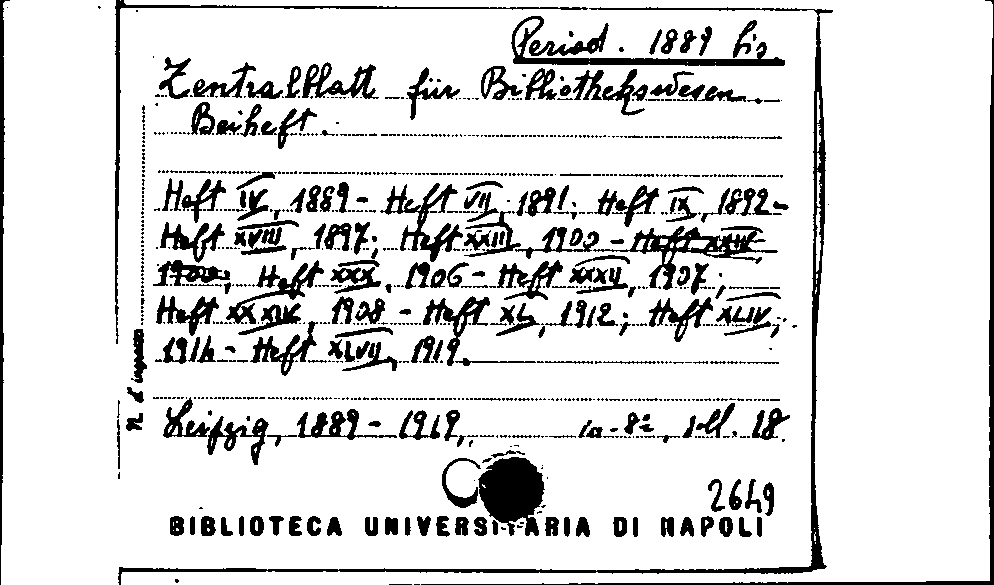 Period. 1889 bis.
Zentralblatt für Bibliothekswesen.
Beiheft.
Heft IV, 1889 - Heft VII, 1891; Heft IX, 1892 -
Heft XVIII, 1897; Heft XXIII, 1900 - Heft XXIV
1900; Heft XXX, 1906 - Heft XXXII, 1907;
Heft XXXIV, 1908 - Heft XL, 1912; Heft XLIV,
1914 - Heft XLVII, 1919.
Leipzig, 1889 - 1919, in-8º, 18
2649
N. d'ingresso
BIBLIOTECA UNIVERSITARIA DI NAPOLI